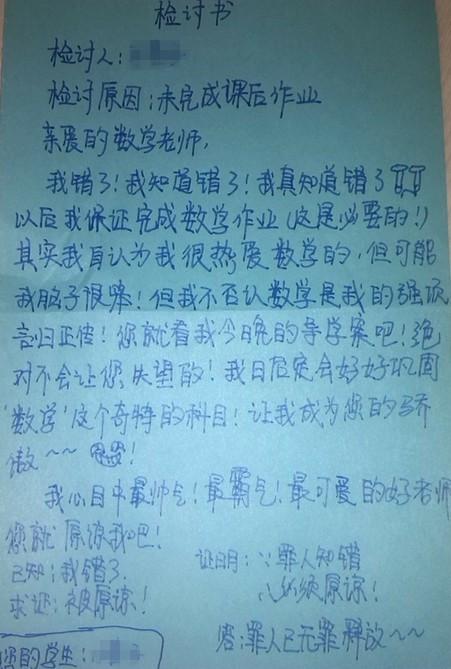 检讨书
检讨人:
检讨原因:未完成课后作业
亲爱的数学老师,
我错了!我知道错了!我真知道错了
以后我保证完成数学作业(这是必要的!)
其实我自认为我很热爱数学的,但可能
我脑子很笨!但我不否认数学是我的强项
言归正传!您就看我今晚的导学案吧!绝
对不会让您失望的!我日后定会好好巩固
'数学'这个奇特的科目!让我成为您的骄
傲~~!
我心目中最帅气!最霸气!最可爱的好老师
您就原谅我吧!
已知:我错了.
求证:被原谅!
证明:∵罪人知错
∴必须原谅!
答:罪人已无罪释放~~
您的学生: